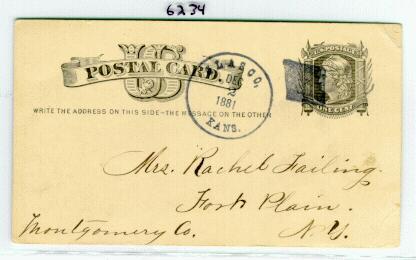 6234
U.S. POSTAGE
US
POSTAL CARD.
GLASCO, KANS.
DEC
2
1881
WRITE THE ADDRESS ON THIS SIDE-THE MESSAGE ON THE OTHER
ONE CENT
Mrs. Rachel Failing.
Fort Plain.
Montgomery Co. N.Y.